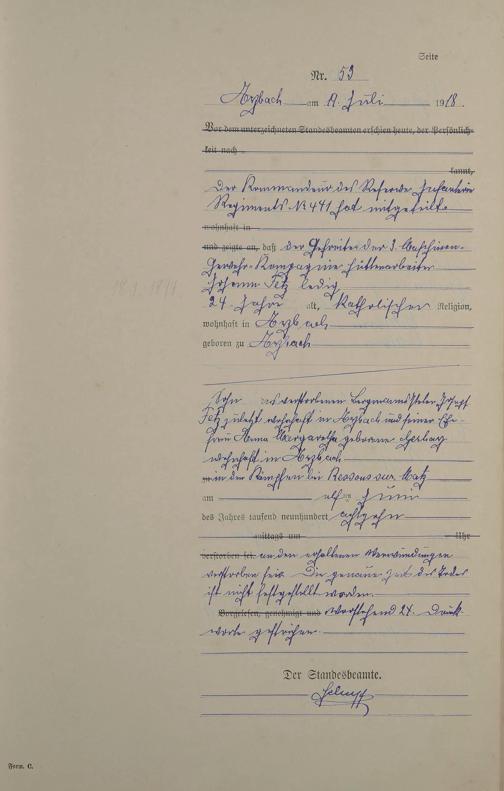 Seite
Nr. 53
Arzbach am 9. Juli 1918.
Vor dem unterzeichneten Standesbeamten erschien heute, der Persönlich-
keit nach
kannt,
Der Kommandeur des Reserve Infanterie
Regiments No 441 hat mitgeteilt
wohnhaft in
und zeigte an, daß der Gefreite der 3. Maschinen-
Gewehr-Kompagnie Hüttenarbeiter
Johann Fetz ledig
24 Jahre alt, katholischer Religion,
wohnhaft in Arzbach
geboren zu Arzbach
Sohn des verstorbenen Bergmanns Peter Joseph
Fetz zuletzt wohnhaft in Arzbach und seiner Ehe-
frau Anna Margaretha geborene
wohnhaft in Arzbach
in den Kämpfen bei Ressons sur Matz
am elften Juni
des Jahres tausend neunhundert achtzehn
mittags um Uhr
verstorben sei, an den erhaltenen Verwundungen
verstorben sei. Die genaue Zeit des Todes
ist nicht festgestellt worden.
Vorgelesen, genehmigt und Vorstehend 24 Druck-
worte gestrichen.
Der Standesbeamte.
Form. C.